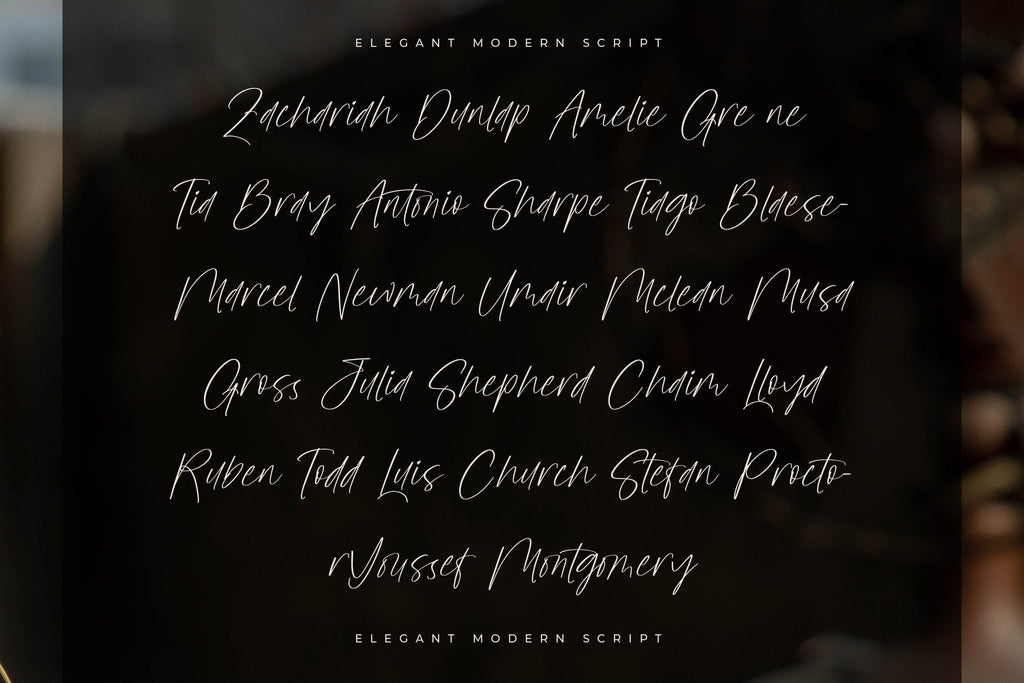 ELEGANT MODERN SCRIPT
Zachariah Dunlap Amelie Gre ne
Tia Bray Antonio Sharpe Tiago Blaese-
Marcel Newman Umair Mclean Musa
Gross Julia Shepherd Chaim Lloyd
Ruben Todd Luis Church Stefan Procto-
rYoussef Montgomery
ELEGANT MODERN SCRIPT